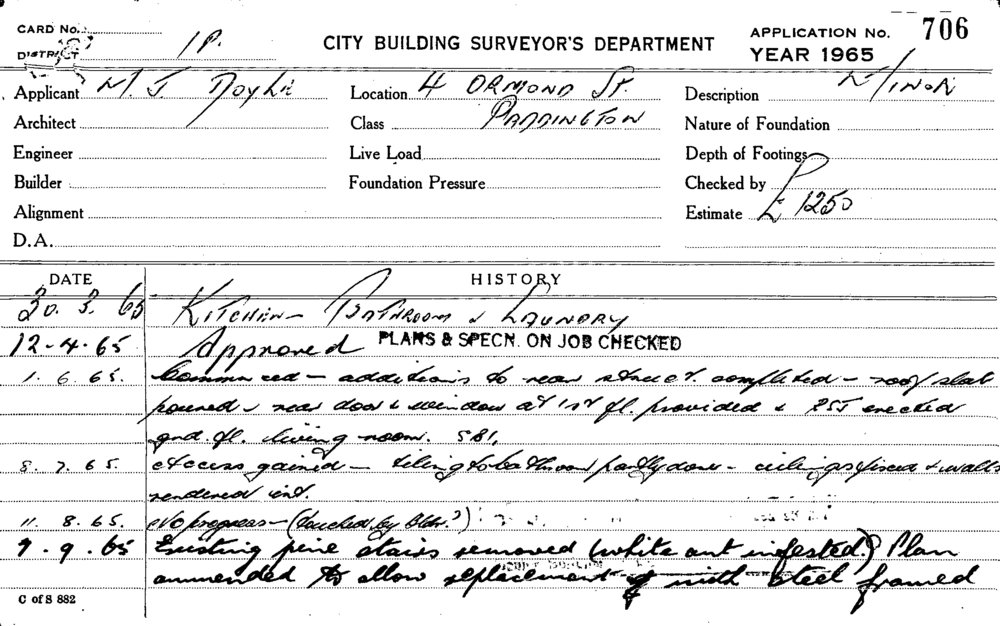 CARD No.
DISTRICT 1P.
CITY BUILDING SURVEYOR'S DEPARTMENT
APPLICATION No. 706
YEAR 1965
Applicant M. J Doyle
Location 4 ORMOND ST.
Description MINOR
Architect
Class PADDINGTON
Nature of Foundation
Engineer
Live Load
Depth of Footings
Builder
Foundation Pressure
Checked by
Alignment
Estimate £ 1250
D.A.
DATE HISTORY
30. 3. 65 KITCHEN - BATHROOM & LAUNDRY
12-4.65 Approved PLANS & SPECN. ON JOB CHECKED
1. 6. 65. Commenced - additions to rear struct. completed - roof slab
poured - rear door & window at 1st fl. provided & RSJ erected
gnd. fl. living room. SBI.
8. 7. 65. Access gained - tiling to bathroom partly done - ceilings fixed & walls
rendered int.
11. 8. 65. No progress - ( by Bldr.?)
9. 9. 65 Existing pine stairs removed (white ant infested.) Plan
ammended to allow replacement of with steel framed
C of S 882